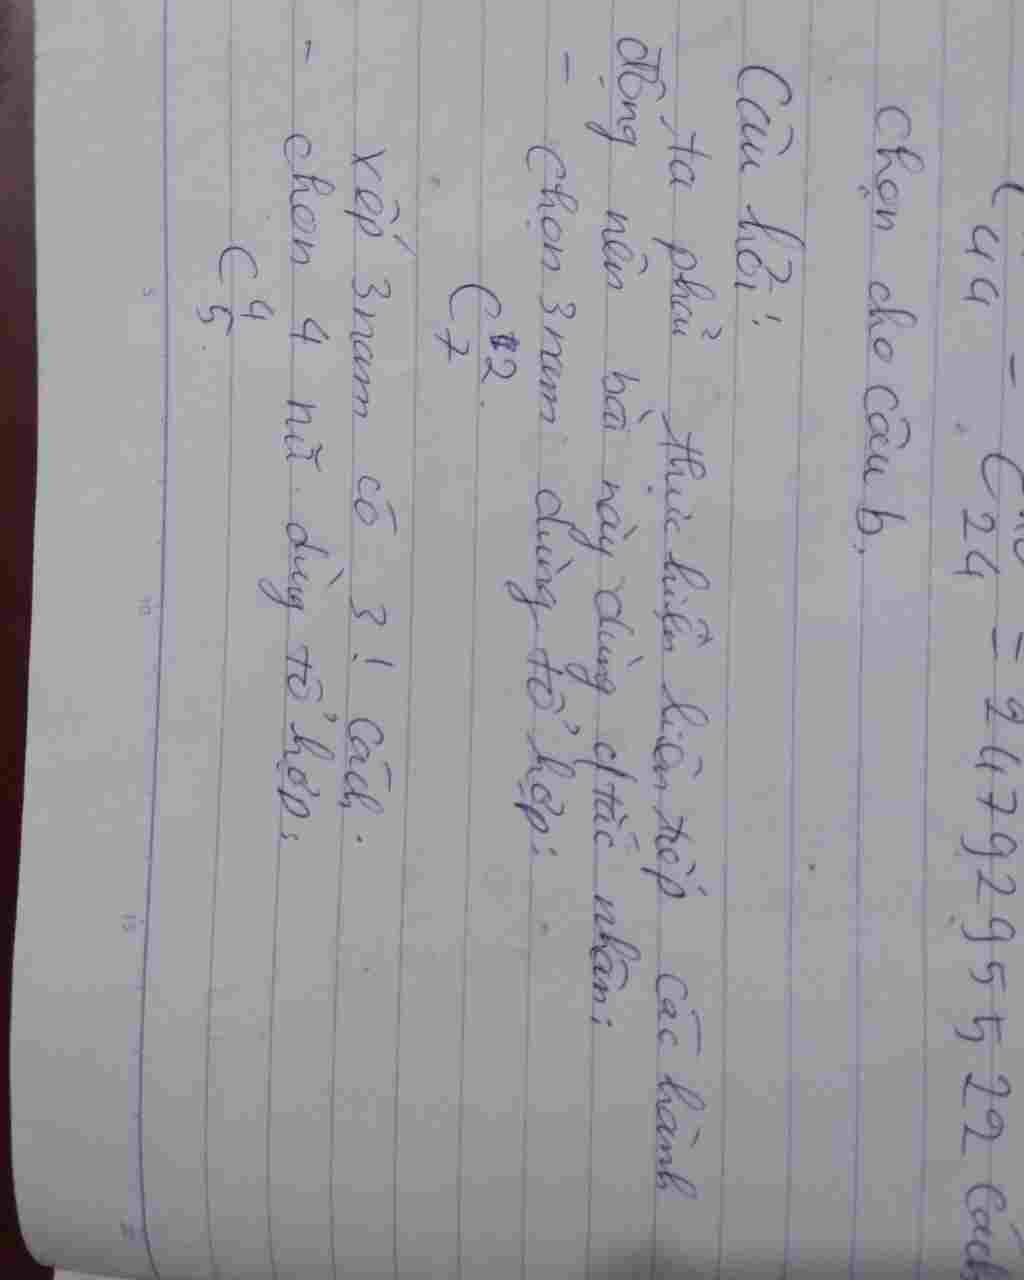 C44 - C24 = 24792955 22 cách
chọn cho câu b.
Câu hỏi:
ta phải thực hiện liên tiếp các hành
động nên bài này dùng q/tắc nhân:
- chọn 3 nam dùng tổ hợp:
C 2 7.
xếp 3 nam có 3! cách.
- chọn 4 nữ dùng tổ hợp:
C 4 5